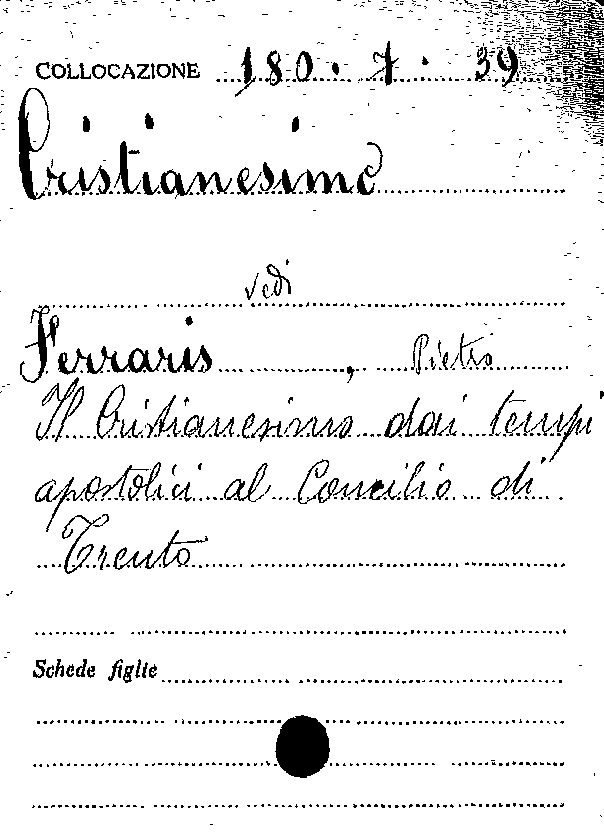 COLLOCAZIONE 180.7.39
Cristianesimo
vedi
Ferraris, Pietro
Il Cristianesimo dai tempi
apostolici al Concilio di
Trento
Schede figlie